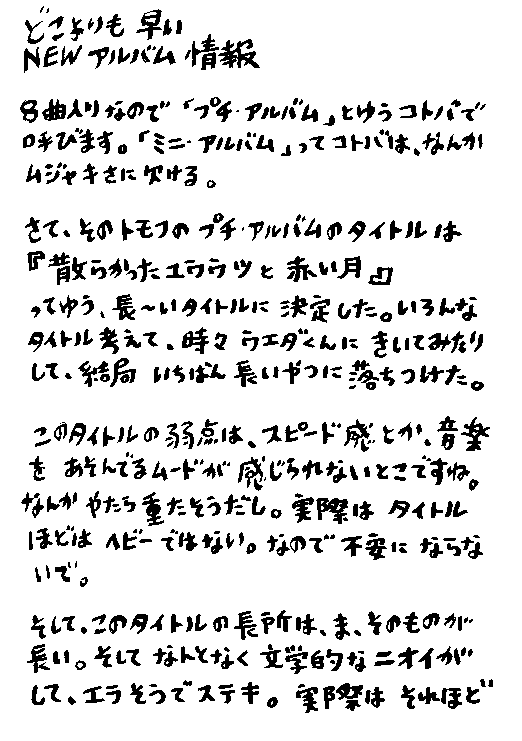 どこよりも 早い
NEW アルバム 情報
8曲入りなので「プチ・アルバム」とゆうコトバで
呼びます。「ミニ・アルバム」ってコトバは、なんか
ムジャキさに欠ける。
さて、そのトモフのプチ・アルバムのタイトルは
『散らかったユウウツと赤い月』
ってゆう、長〜いタイトルに決定した。いろんな
タイトル考えて、時々ウエダくんにきいてみたり
して、結局いちばん長いやつに落ちつけた。
このタイトルの弱点は、スピード感とか、音楽
をあそんでるムードが感じられないとこですね。
なんかやたら重たそうだし。実際はタイトル
ほどはヘビーではない。なので不安にならな
いで。
そして、このタイトルの長所は、ま、そのものが
長い。そしてなんとなく文学的なニオイが
して、エラそうでステキ。実際はそれほど